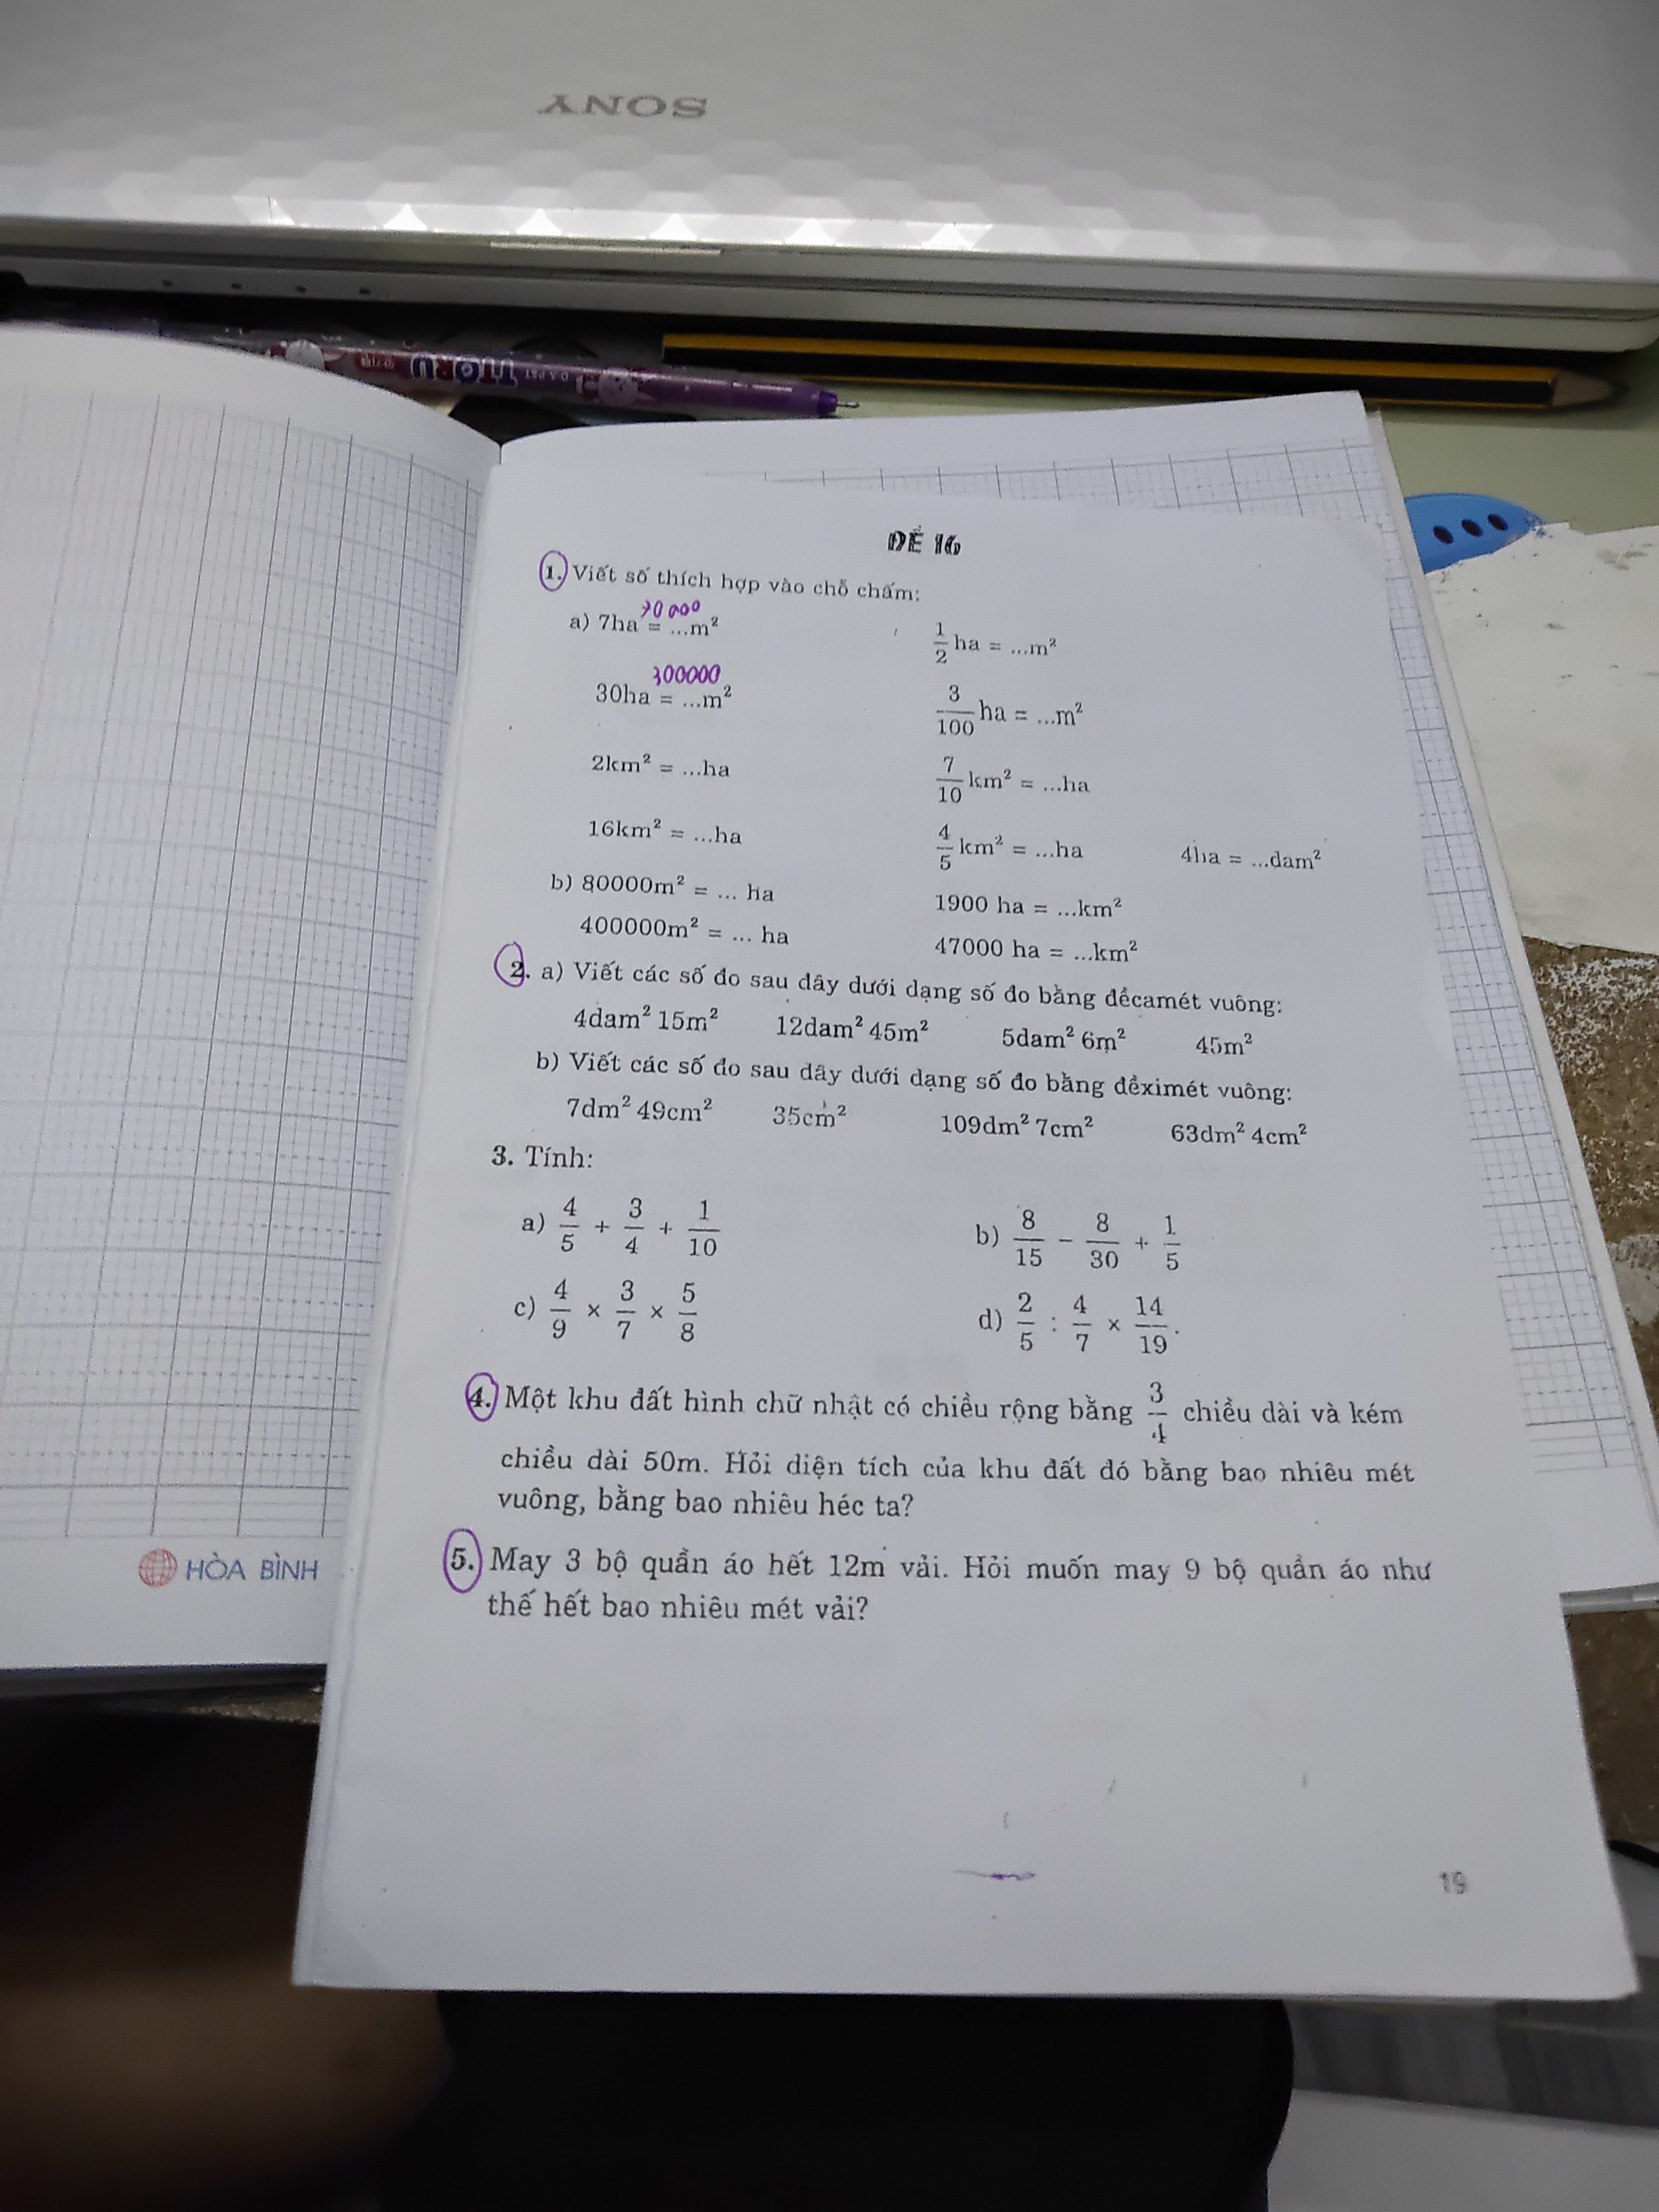 SONY
TITORU
ĐỀ 16
1. Viết số thích hợp vào chỗ chấm:
70 000
a) 7ha = ...m² 1/2 ha = ...m²
300000
30ha = ...m² 3/100 ha = ...m²
2km² = ...ha 7/10 km² = ...ha
16km² = ...ha 4/5 km² = ...ha 4ha = ...dam²
b) 80000m² = ... ha 1900 ha = ...km²
400000m² = ... ha 47000 ha = ...km²
2. a) Viết các số đo sau đây dưới dạng số đo bằng đềcamét vuông:
4dam² 15m² 12dam² 45m² 5dam² 6m² 45m²
b) Viết các số đo sau đây dưới dạng số đo bằng đềximét vuông:
7dm² 49cm² 35cm² 109dm² 7cm² 63dm² 4cm²
3. Tính:
a) 4/5 + 3/4 + 1/10 b) 8/15 - 8/30 + 1/5
c) 4/9 × 3/7 × 5/8 d) 2/5 : 4/7 × 14/19.
4. Một khu đất hình chữ nhật có chiều rộng bằng 3/4 chiều dài và kém
chiều dài 50m. Hỏi diện tích của khu đất đó bằng bao nhiêu mét
vuông, bằng bao nhiêu héc ta?
5. May 3 bộ quần áo hết 12m vải. Hỏi muốn may 9 bộ quần áo như
thế hết bao nhiêu mét vải?
HÒA BÌNH
19